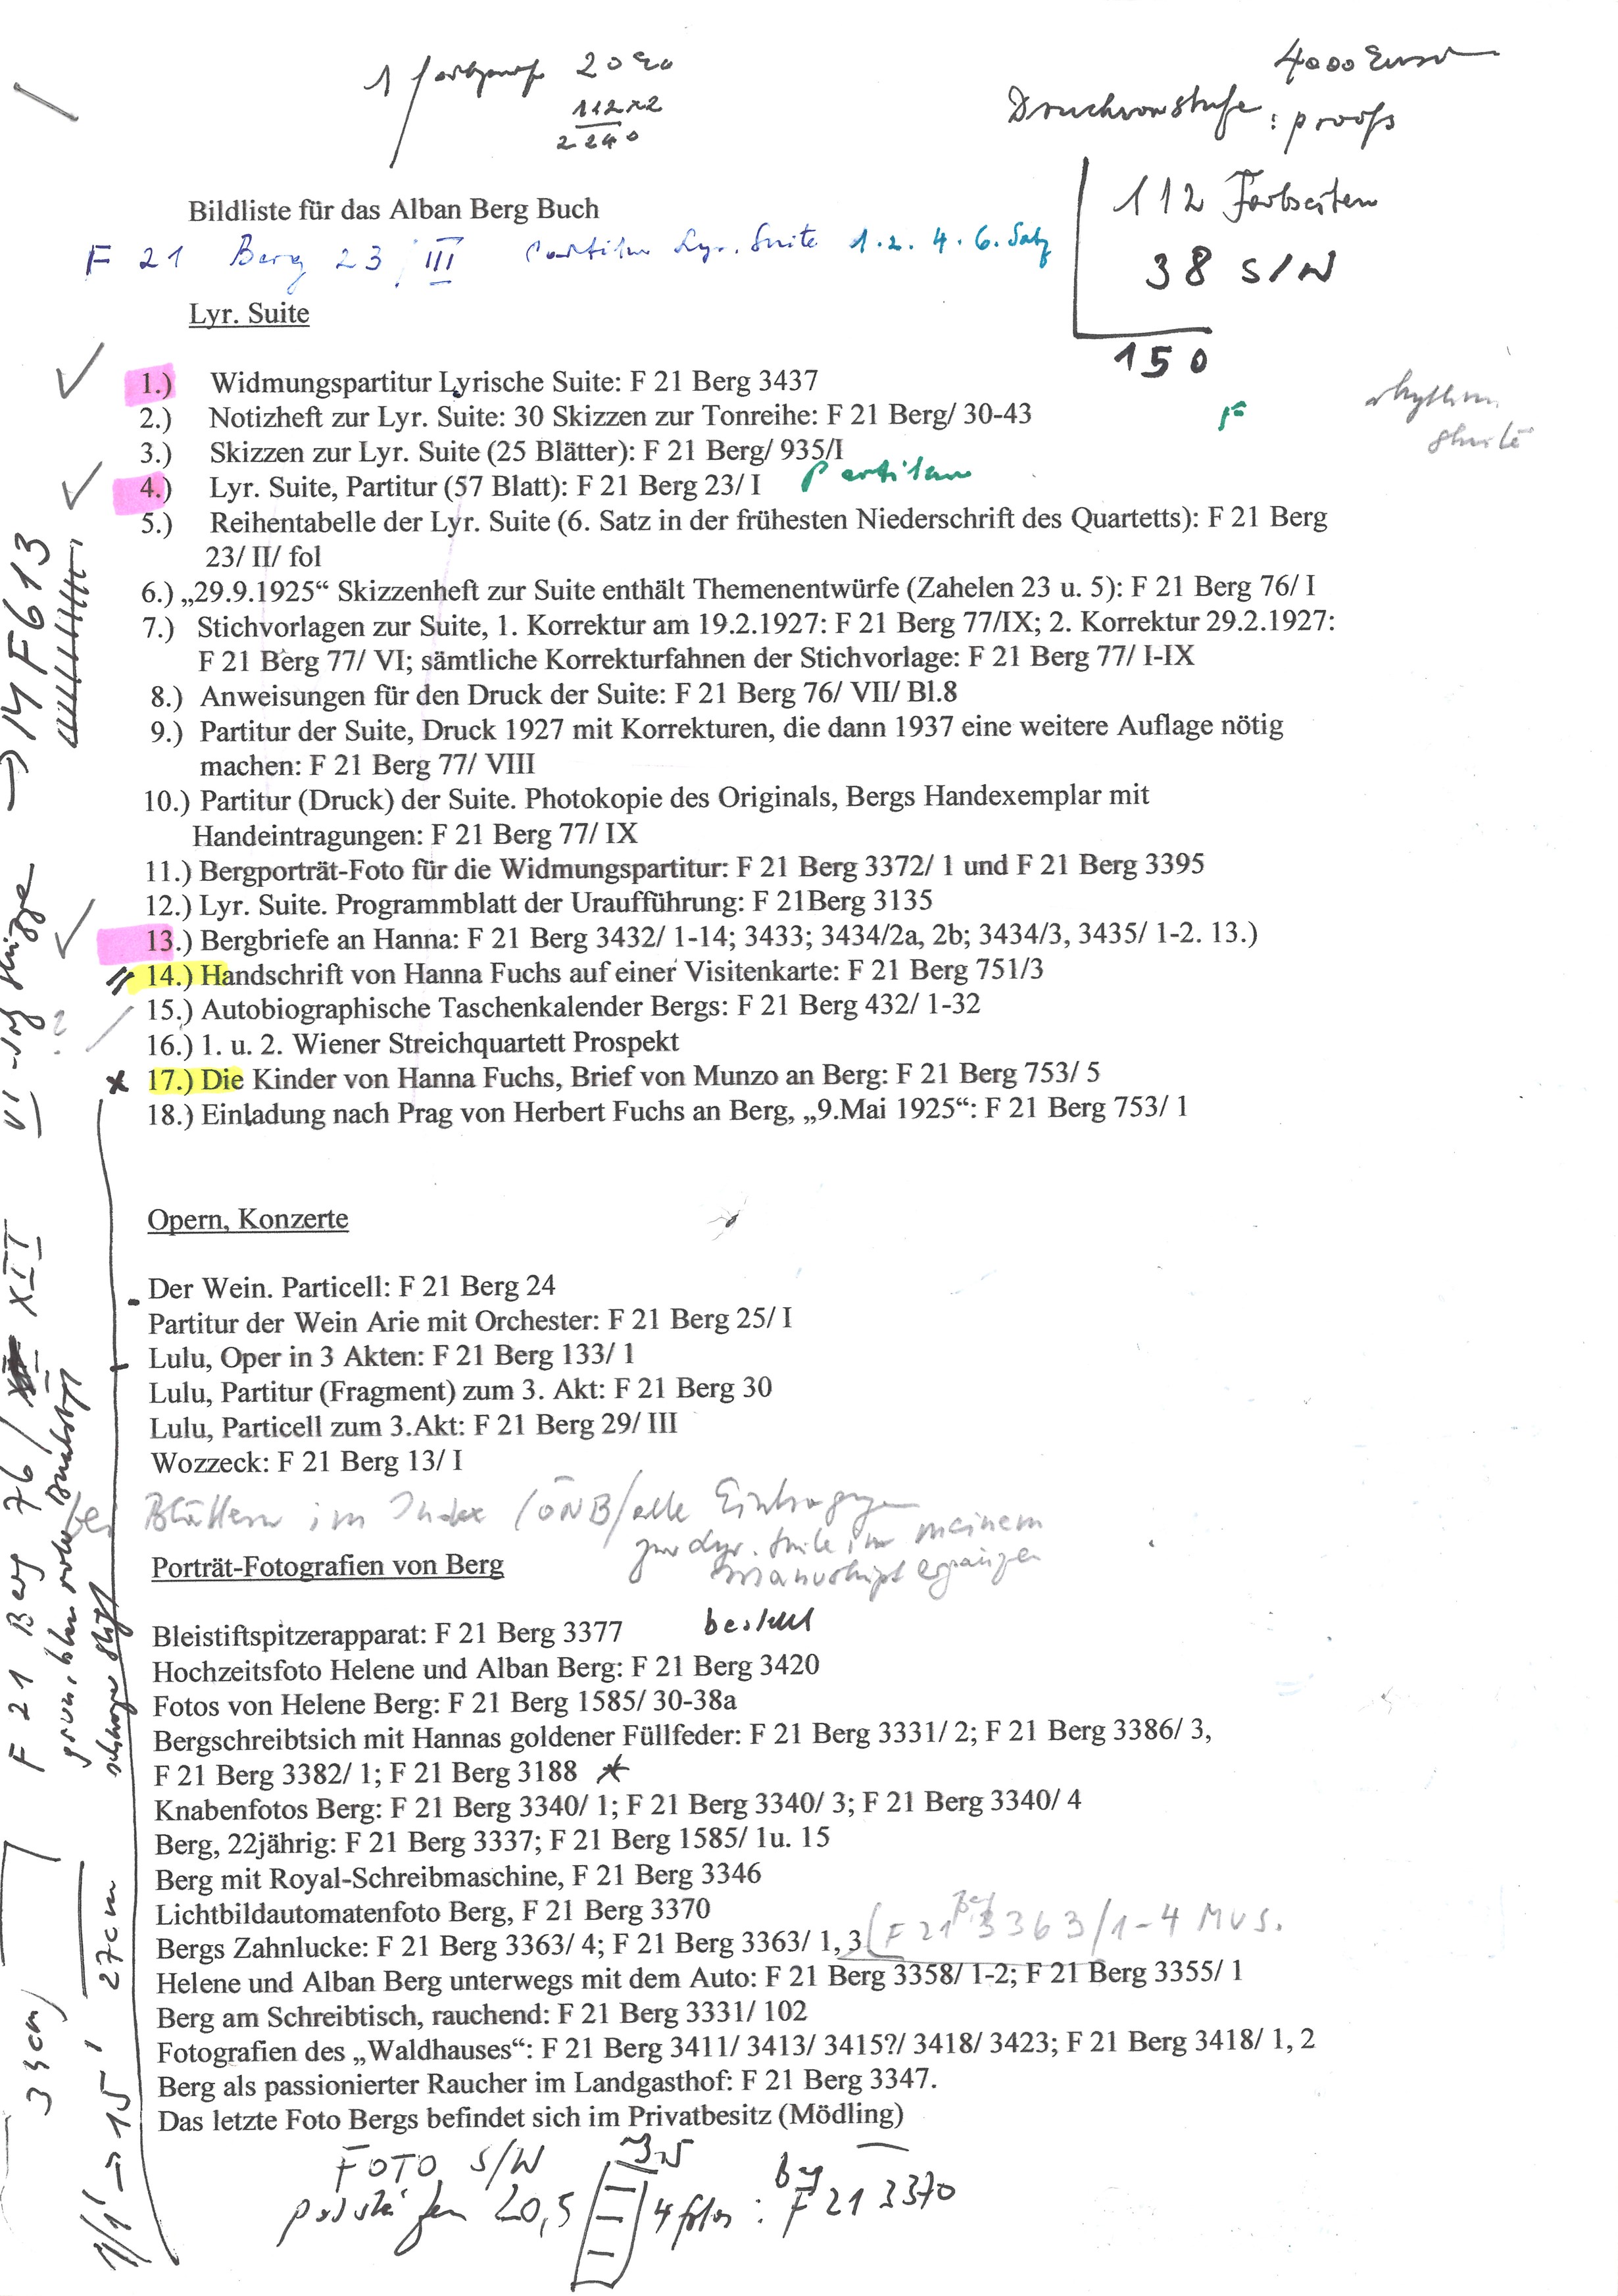 4000 Euro
1 20
112x2
2240
Druckvorstufe: proofs
112 Farbseiten
38 S/W
150
Bildliste für das Alban Berg Buch
F 21 Berg 23/III Partitur Lyr. Suite 1. 2. 4. 6. Satz
Lyr. Suite
1.) Widmungspartitur Lyrische Suite: F 21 Berg 3437
2.) Notizheft zur Lyr. Suite: 30 Skizzen zur Tonreihe: F 21 Berg/ 30-43
3.) Skizzen zur Lyr. Suite (25 Blätter): F 21 Berg/ 935/I
4.) Lyr. Suite, Partitur (57 Blatt): F 21 Berg 23/ I Partitur
5.) Reihentabelle der Lyr. Suite (6. Satz in der frühesten Niederschrift des Quartetts): F 21 Berg
23/ II/ fol
6.) „29.9.1925“ Skizzenheft zur Suite enthält Themenentwürfe (Zahelen 23 u. 5): F 21 Berg 76/ I
7.) Stichvorlagen zur Suite, 1. Korrektur am 19.2.1927: F 21 Berg 77/IX; 2. Korrektur 29.2.1927:
F 21 Berg 77/ VI; sämtliche Korrekturfahnen der Stichvorlage: F 21 Berg 77/ I-IX
8.) Anweisungen für den Druck der Suite: F 21 Berg 76/ VII/ Bl.8
9.) Partitur der Suite, Druck 1927 mit Korrekturen, die dann 1937 eine weitere Auflage nötig
machen: F 21 Berg 77/ VIII
10.) Partitur (Druck) der Suite. Photokopie des Originals, Bergs Handexemplar mit
Handeintragungen: F 21 Berg 77/ IX
11.) Bergporträt-Foto für die Widmungspartitur: F 21 Berg 3372/ 1 und F 21 Berg 3395
12.) Lyr. Suite. Programmblatt der Uraufführung: F 21Berg 3135
13.) Bergbriefe an Hanna: F 21 Berg 3432/ 1-14; 3433; 3434/2a, 2b; 3434/3, 3435/ 1-2. 13.)
14.) Handschrift von Hanna Fuchs auf einer Visitenkarte: F 21 Berg 751/3
15.) Autobiographische Taschenkalender Bergs: F 21 Berg 432/ 1-32
16.) 1. u. 2. Wiener Streichquartett Prospekt
17.) Die Kinder von Hanna Fuchs, Brief von Munzo an Berg: F 21 Berg 753/ 5
18.) Einladung nach Prag von Herbert Fuchs an Berg, „9.Mai 1925“: F 21 Berg 753/ 1
Opern, Konzerte
Der Wein. Particell: F 21 Berg 24
Partitur der Wein Arie mit Orchester: F 21 Berg 25/ I
Lulu, Oper in 3 Akten: F 21 Berg 133/ 1
Lulu, Partitur (Fragment) zum 3. Akt: F 21 Berg 30
Lulu, Particell zum 3.Akt: F 21 Berg 29/ III
Wozzeck: F 21 Berg 13/ I
Blättern im Index (ÖNB/alle Eintragungen
zur Lyr. Suite in meinem
Manuskript ergänzen
Porträt-Fotografien von Berg
Bleistiftspitzerapparat: F 21 Berg 3377 bestellt
Hochzeitsfoto Helene und Alban Berg: F 21 Berg 3420
Fotos von Helene Berg: F 21 Berg 1585/ 30-38a
Bergschreibtsich mit Hannas goldener Füllfeder: F 21 Berg 3331/ 2; F 21 Berg 3386/ 3,
F 21 Berg 3382/ 1; F 21 Berg 3188
Knabenfotos Berg: F 21 Berg 3340/ 1; F 21 Berg 3340/ 3; F 21 Berg 3340/ 4
Berg, 22jährig: F 21 Berg 3337; F 21 Berg 1585/ 1u. 15
Berg mit Royal-Schreibmaschine, F 21 Berg 3346
Lichtbildautomatenfoto Berg, F 21 Berg 3370
Bergs Zahnlucke: F 21 Berg 3363/ 4; F 21 Berg 3363/ 1, 3 (F 21 Berg 3363/1-4 MUS.
Helene und Alban Berg unterwegs mit dem Auto: F 21 Berg 3358/ 1-2; F 21 Berg 3355/ 1
Berg am Schreibtisch, rauchend: F 21 Berg 3331/ 102
Fotografien des „Waldhauses“: F 21 Berg 3411/ 3413/ 3415?/ 3418/ 3423; F 21 Berg 3418/ 1, 2
Berg als passionierter Raucher im Landgasthof: F 21 Berg 3347.
Das letzte Foto Bergs befindet sich im Privatbesitz (Mödling)
FOTO S/W
20,5 4 fotos : Berg F 21 3370
F 21 Berg 76/ XII
27cm